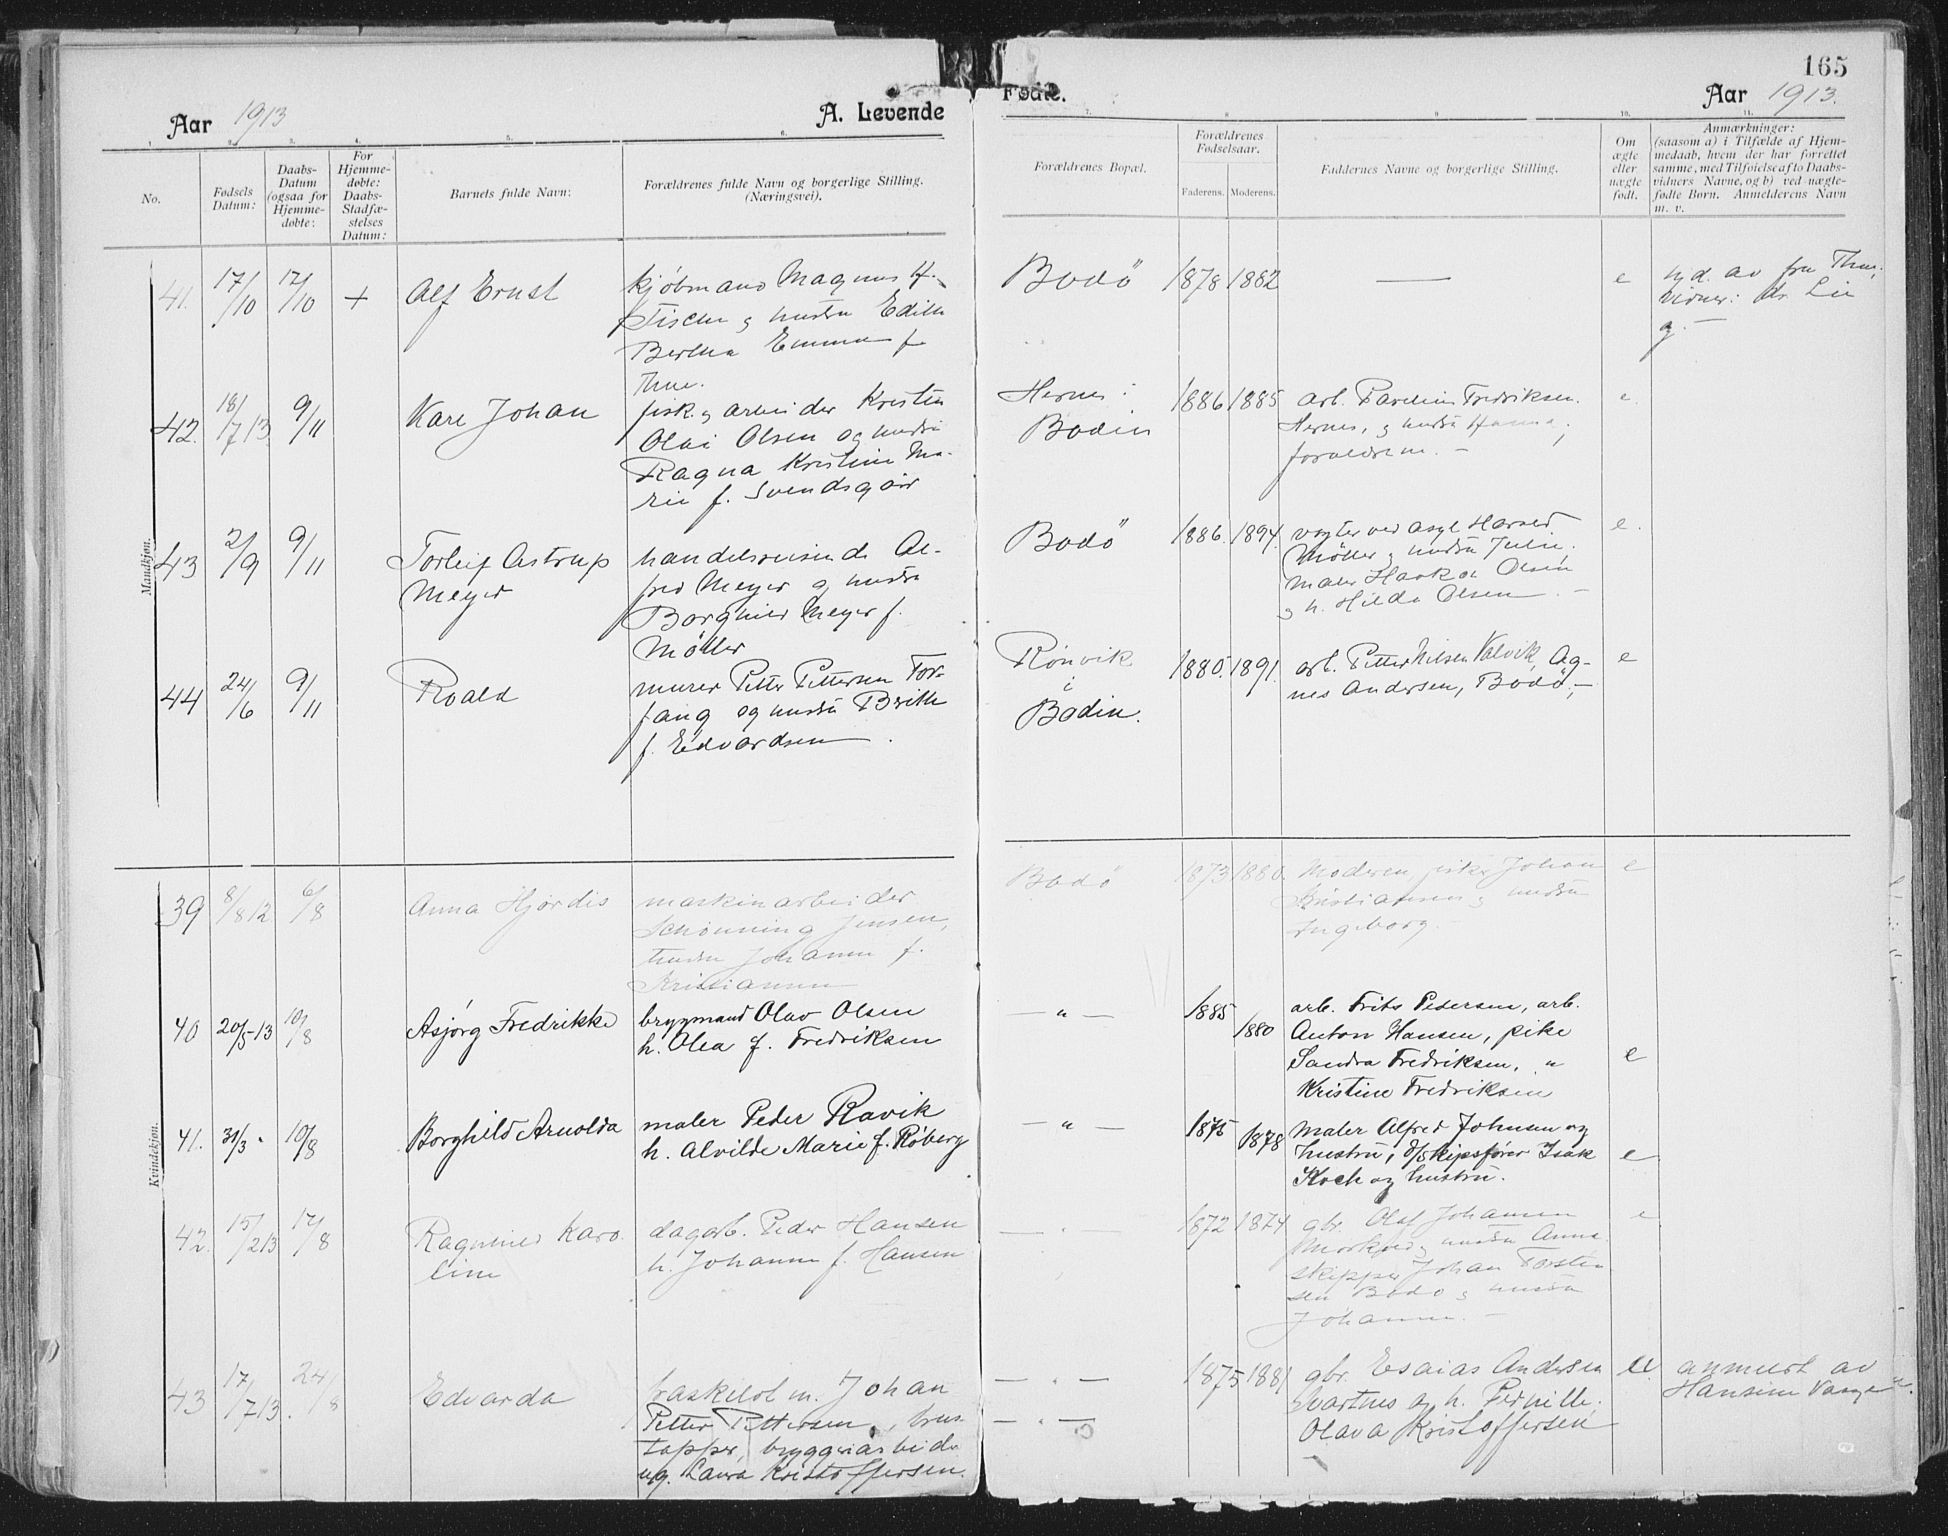 165
Aar 1913
A. Levende
Fødte.
Aar 1913.
1. 2. 3. 4. 5. 6. 7. 8. 9. 10. 11.
No.
Fødsels
Datum:
Daabs-
Datum
(ogsaa for
Hjemme-
døbte:
For
Hjemme-
døbte:
Daabs-
Stadfæ-
stelses
Datum:
Barnets fulde Navn:
Forældrenes fulde Navn og borgerlige Stilling.
(Næringsvei).
Forældrenes Bopæl.
Forældrenes
Fødselsaar.
Faderens. Moderens.
Faddernes Navne og borgerlige Stilling.
Om
ægte
eller
uægte
født.
Anmærkninger:
(saasom a) i Tilfælde af Hjem-
medaab, hvem der har forrettet
samme, med Tilføielse af to Daabs-
vidners Navne, og b) ved uægte-
fødte Børn. Anmelderens Navn
m. v.
Mandkjøn.
41. 17/10 17/10 + Alf Ernst
kjøbmand Magnus H.
Tischer g hustru Edith
Bertha Emma f.
Thue.
Bodö 1878 1882 — e
av fru Thue.
vidner: dr. Lie
g. —
42. 18/7 13 9/11 Kare Johan
fisk. g arbeider Kristen
Olai Olsen og hustru
Ragna Kristine Ma-
rie f. Svendsgår
Hernes i
Bodin
1886 1885
arb. Fredriksen.
Hernes, g hustru Hanna,
forældrene. —
e.
43 2/9 9/11 Torleif Astrup
Meyer
handelsreisende Al-
fred Meyer g hustru
Borghild Meyer f.
Møller
Bodö 1886. 1894.
vogter ved asyl Harald
Møller g hustru Julie,
maler Haakon Olsen
g h. Hilda Olsen. —
e.
44 24/6 9/11 Roald
murer Petter Pettersen Tor-
fang og hustru Brithe
f. Edvardsen.
Rönvik
i
Bodin.
1880. 1891.
arb. Petter Nilsen Valvik, Ag-
nes Andersen, Bodö, —
e
Kvindekjøn.
39 8/8 12 6/8 Anna Hjördis
maskinarbeider
Schönning Jensen,
hustru Johanne f.
Kristiansen
Bodö 1873 1880.
Moderen, Johan
Kristiansen g hustru
Ingeborg.
e
40 20/5-13 10/8 Asjörg Fredrikke
bryggmand Olav Olsen
h. Olea f. Fredriksen
— " — 1885 1880
arb. Frits Pedersen, arb.
Anton Hansen, pike
Sandra Fredriksen, "
Kristine Fredriksen
e
41. 31/3 " 10/8 Borghild Arnolda
maler Peder Ravik
h. Alvilde Marie f. Röberg
— " — 1875 1878
Maler Alfred Johnsen og
hustru, d/skipsförer Isak
Koch og hustru.
e
42. 15/2 13 17/8 Ragnhild Karo
line
dagarb. Peder Hansen
h. Johanne f. Hansen
— " — 1872 1874
gbr. Olaf Johansen
Mørkved g hustru Anna.
skipper Johan Torsten
sen Bodö g hustru
Johanne. —
e
43 17/7 13. 24/8 Edvarda
fraskilt m. Johan
Petter Pettersen,
tapper, bryggeriarbeider
ug. Laura Kristoffersen.
— " —
— " —
1875 1881
gbr. Esaias Andersen
Svartnes og h. Pernille.
Olava Kristoffersen
—
ue. anmeldt av
Hansine